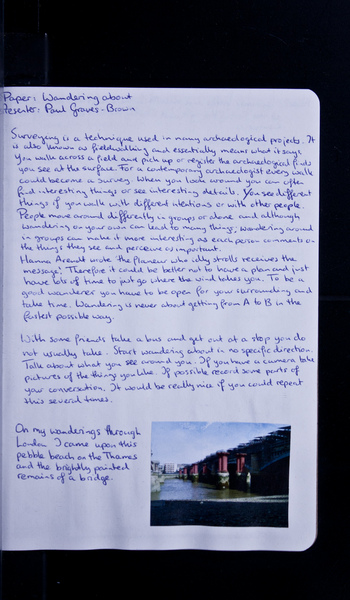 Paper: Wandering about
Presenter: Paul Graves-Brown
Surveying is a technique used in many archaeological projects. It
is also known as fieldwalking and essentially means what it says.
You walk across a field and pick up or register the archaeological finds
you see at the surface. For a contemporary archaeologist every walk
could become a survey. When you look around you can often
find interesting things or see interesting details. You see different
things if you walk with different intentions or with other people.
People move around differently in groups or alone and although
wandering on your own can lead to many things, wandering around
in groups can make it more interesting as each person comments on
the things they see and perceive as important.
Hanna Arendt wrote 'the flaneur who idly strolls receives the
message'. Therefore it could be better not to have a plan and just
have lots of time to just go where the wind takes you. To be a
good wanderer you have to be open for your surrounding and
take time. Wandering is never about getting from A to B in the
fastest possible way.
With some friends take a bus and get out at a stop you do
not usually take. Start wandering about in no specific direction.
Talk about what you see around you. If you have a camera take
pictures of the things you like. If possible record some parts of
your conversation. It would be really nice if you could repeat
this several times.
On my wanderings through
London I came upon this
pebble beach on the Thames
and the brightly painted
remains of a bridge.